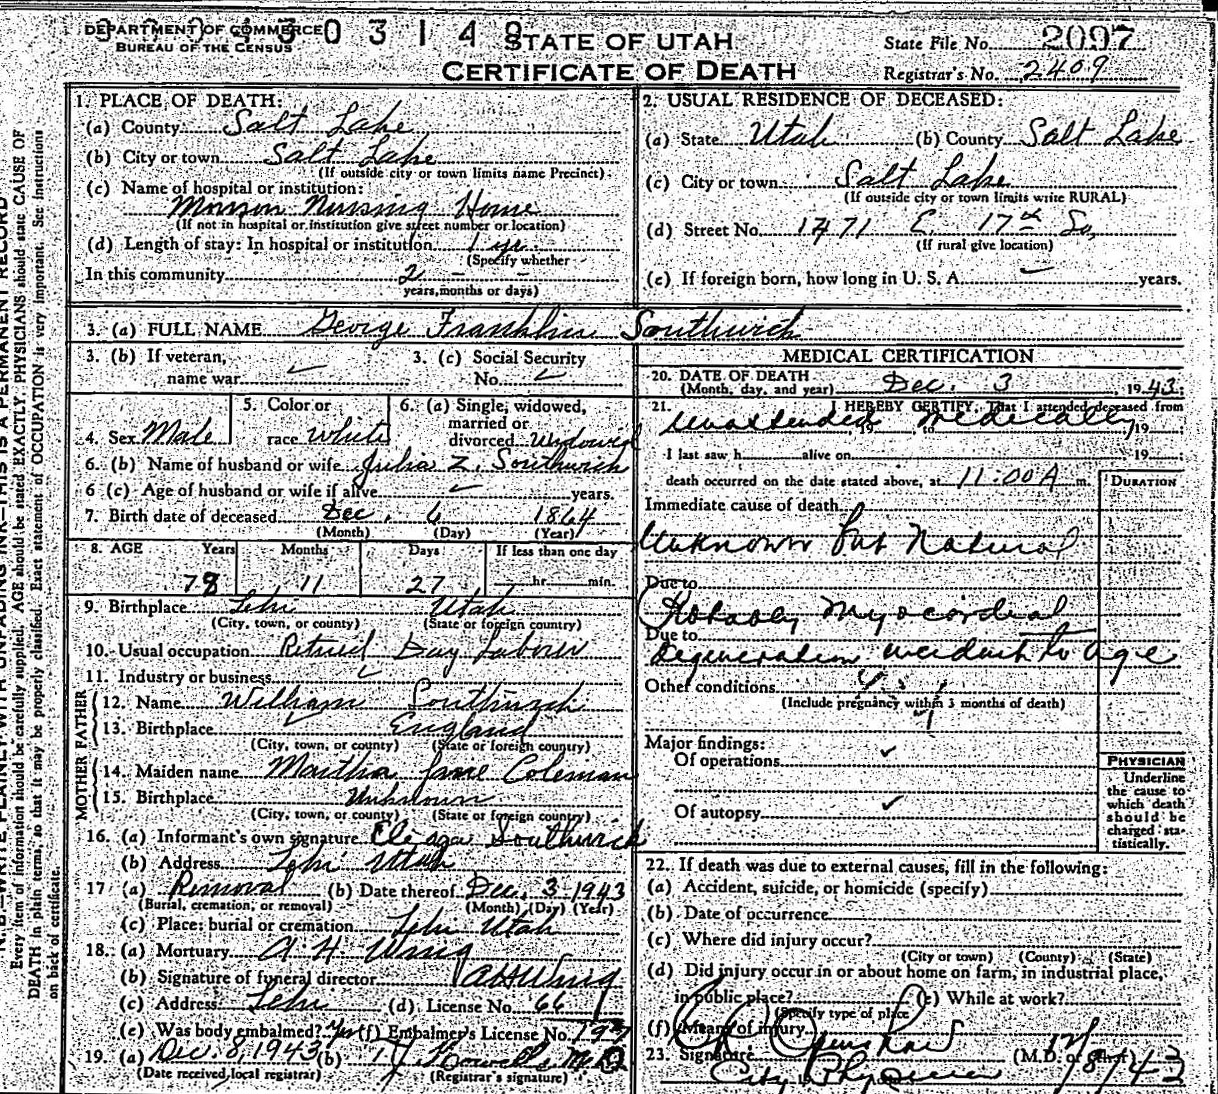 DEPARTMENT OF COMMERCE
BUREAU OF THE CENSUS
0 3 1 4 9
STATE OF UTAH
CERTIFICATE OF DEATH
State File No. 2097
Registrar's No. 2409
N. B.—WRITE PLAINLY WITH UNFADING INK—THIS IS A PERMANENT RECORD
Every item of information should be carefully supplied. AGE should be stated EXACTLY. PHYSICIANS should state CAUSE OF
DEATH in plain terms, so that it may be properly classified. Exact statement of OCCUPATION is very important. See instructions
on back of certificate.
1. PLACE OF DEATH:
(a) County Salt Lake
(b) City or town Salt Lake
(If outside city or town limits name Precinct)
(c) Name of hospital or institution:
Monson Nursing Home
(If not in hospital or institution give street number or location)
(d) Length of stay: In hospital or institution 1 yr
(Specify whether
In this community 2 - -
years, months or days)
2. USUAL RESIDENCE OF DECEASED:
(a) State Utah (b) County Salt Lake
(c) City or town Salt Lake
(If outside city or town limits write RURAL)
(d) Street No. 1471 E. 17th So.
(If rural give location)
(e) If foreign born, how long in U. S. A. years.
3. (a) FULL NAME George Franklin Southwick
3. (b) If veteran,
name war
3. (c) Social Security
No.
4. Sex Male
5. Color or
race White
6. (a) Single, widowed,
married or
divorced Widowed
6. (b) Name of husband or wife Julia Z. Southwick
6 (c) Age of husband or wife if alive years.
7. Birth date of deceased Dec. 6 1864
(Month) (Day) (Year)
8. AGE Years Months Days If less than one day
78 11 27 hr. min.
9. Birthplace Lehi Utah
(City, town, or county) (State or foreign country)
10. Usual occupation Retired Day Laborer
11. Industry or business
FATHER
12. Name William Southwick
13. Birthplace England
(City, town, or county) (State or foreign country)
MOTHER
14. Maiden name Martha Jane Coleman
15. Birthplace Unknown
(City, town, or county) (State or foreign country)
16. (a) Informant's own signature Southwick
(b) Address Lehi Utah
17 (a) Removal (b) Date thereof Dec. 3-1943
(Burial, cremation, or removal) (Month) (Day) (Year)
(c) Place: burial or cremation Lehi Utah
18. (a) Mortuary A. H. Wing
(b) Signature of funeral director A H Wing
(c) Address Lehi (d) License No. 66
(e) Was body embalmed? Yes (f) Embalmer's License No. 197
19. (a) Dec. 8, 1943 (b) M.D.
(Date received local registrar) (Registrar's signature)
MEDICAL CERTIFICATION
20. DATE OF DEATH
(Month, day, and year) Dec. 3, 1943.
21. I HEREBY CERTIFY, That I attended deceased from
Unattended medically, 19 , to 19
I last saw h alive on 19 ;
death occurred on the date stated above, at 11:00 A m.
DURATION
Immediate cause of death
Unknown but Natural
Due to
Probably Myocordial
Due to
Degeneration incident to age
Other conditions
(Include pregnancy within 3 months of death)
Major findings:
Of operations
Of autopsy
PHYSICIAN
Underline
the cause to
which death
should be
charged sta-
tistically.
22. If death was due to external causes, fill in the following:
(a) Accident, suicide, or homicide (specify)
(b) Date of occurrence
(c) Where did injury occur?
(City or town) (County) (State)
(d) Did injury occur in or about home on farm, in industrial place,
in public place? (e) While at work?
(Specify type of place
(f) Means of injury
23. Signature (M.D. or other) 12/8/43
City Physician